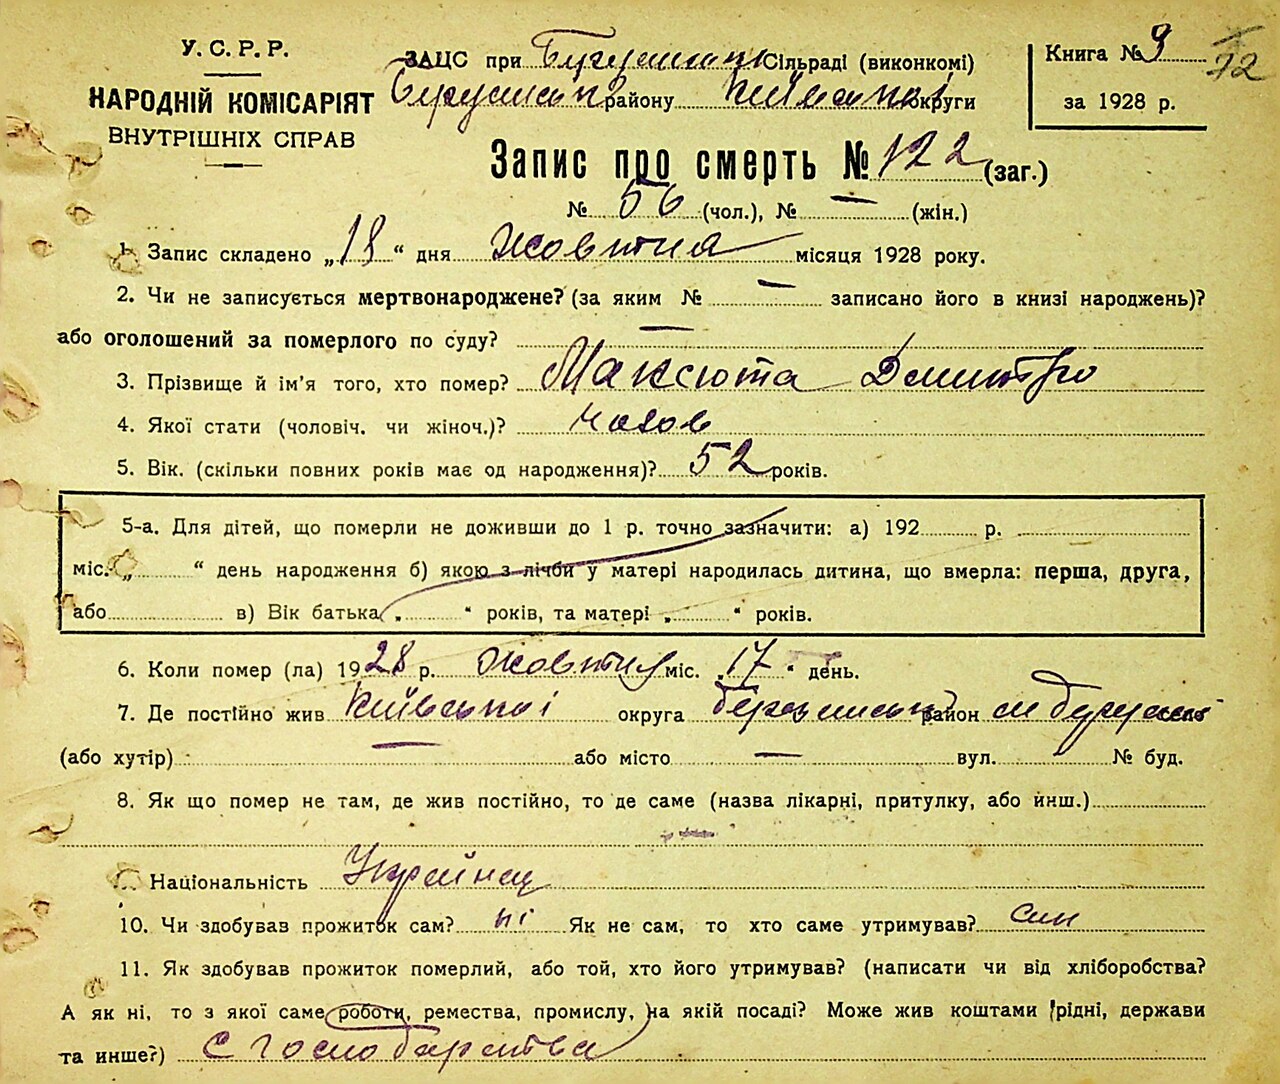 У. С. Р. Р.
НАРОДНІЙ КОМІСАРІЯТ
ВНУТРІШНІХ СПРАВ
ЗАЦС при Сільраді (виконкомі)
району Київської округи
Книга № 9
за 1928 р.
12
Запис про смерть № 122 (заг.)
№ 56 (чол.), № — (жін.)
1. Запис складено „18“ дня Жовтня місяця 1928 року.
2. Чи не записується мертвонароджене? (за яким № — записано його в книзі народжень)?
або оголошений за померлого по суду? —
3. Прізвище й ім'я того, хто помер? Максюта Дмитро
4. Якої стати (чоловіч. чи жіноч.)? чолов
5. Вік. (скільки повних років має од народження)? 52 років.
5-а. Для дітей, що померли не доживши до 1 р. точно зазначити: а) 192 р.
міс. „ “ день народження б) якою з лічби у матері народилась дитина, що вмерла: перша, друга,
або в) Вік батька „ “ років, та матері „ “ років.
6. Коли помер (ла) 1928 р. Жовтня міс. „17“ день.
7. Де постійно жив Київської округа район село
(або хутір) — або місто — вул. № буд.
8. Як що помер не там, де жив постійно, то де саме (назва лікарні, притулку, або инш.)
—
Національність Українец
10. Чи здобував прожиток сам? ні Як не сам, то хто саме утримував? син
11. Як здобував прожиток померлий, або той, хто його утримував? (написати чи від хліборобства?
А як ні, то з якої саме роботи, ремества, промислу, на якій посаді? Може жив коштами рідні, держави
та инше?) С господарства